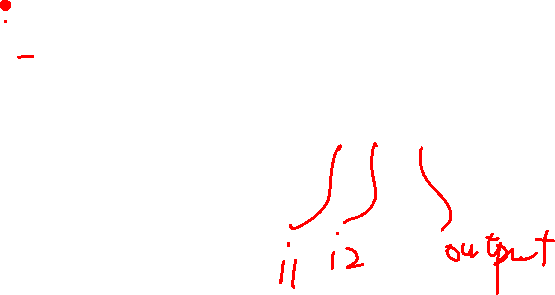 i1 i2 output